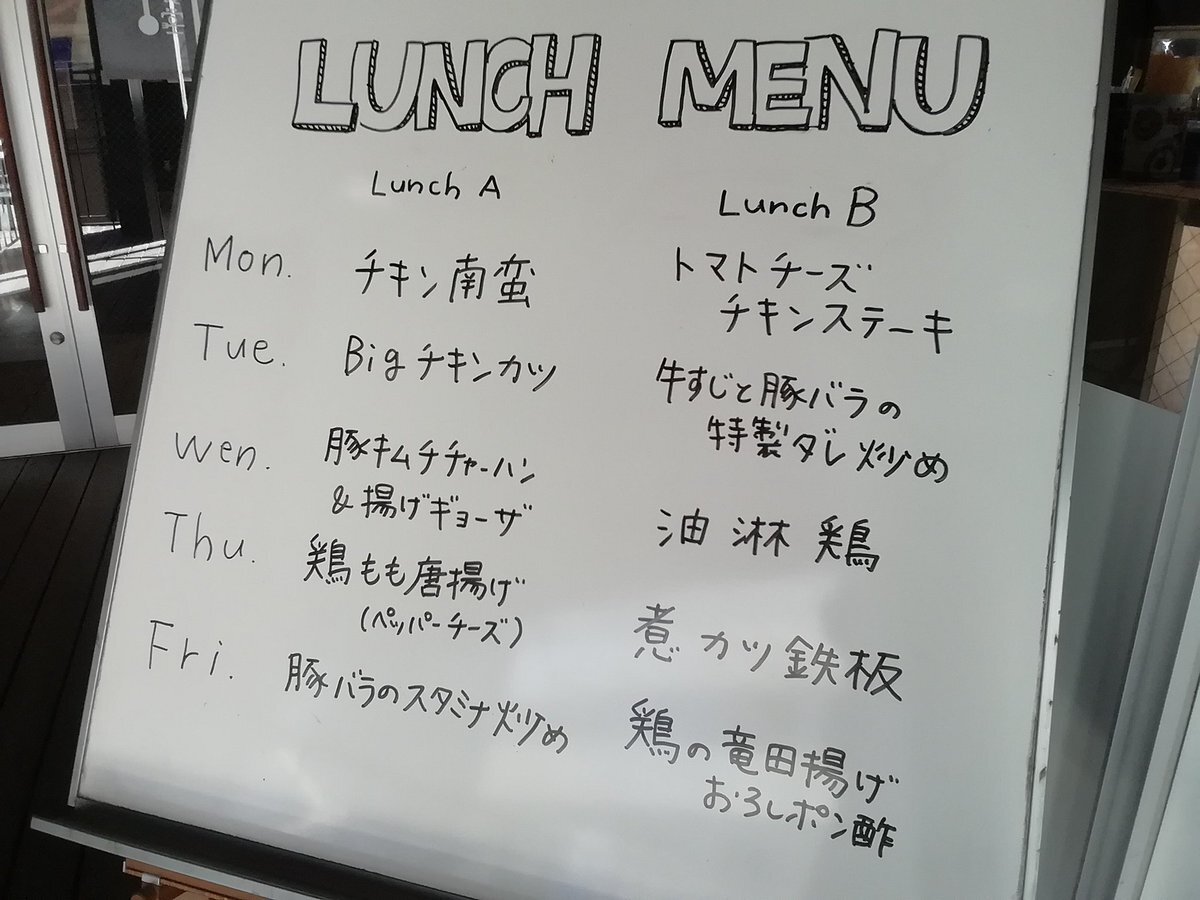 LUNCH MENU
Lunch A Lunch B
Mon. チキン南蛮 トマトチーズ
チキンステーキ
Tue. Bigチキンカツ 牛すじと豚バラの
特製ダレ炒め
Wen. 豚キムチチャーハン
&揚げギョーザ 油淋鶏
Thu. 鶏もも唐揚げ
(ペッパーチーズ) 煮カツ鉄板
Fri. 豚バラのスタミナ炒め 鶏の竜田揚げ
おろしポン酢